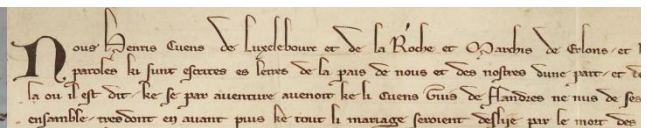 Nous Henris Cuens de Luxelebourc et de la Roche et Marchis de Erlons et
paroles ki sunt escrites es lettres de la pais de nous et des nostres dune part et de
la ou il est dit ke se par aventure avenoit ke li Cuens Guis de flandres ne nus de ses
ensamble tresdont en avant puis ke tout li mariage seroient deslije par le mort des